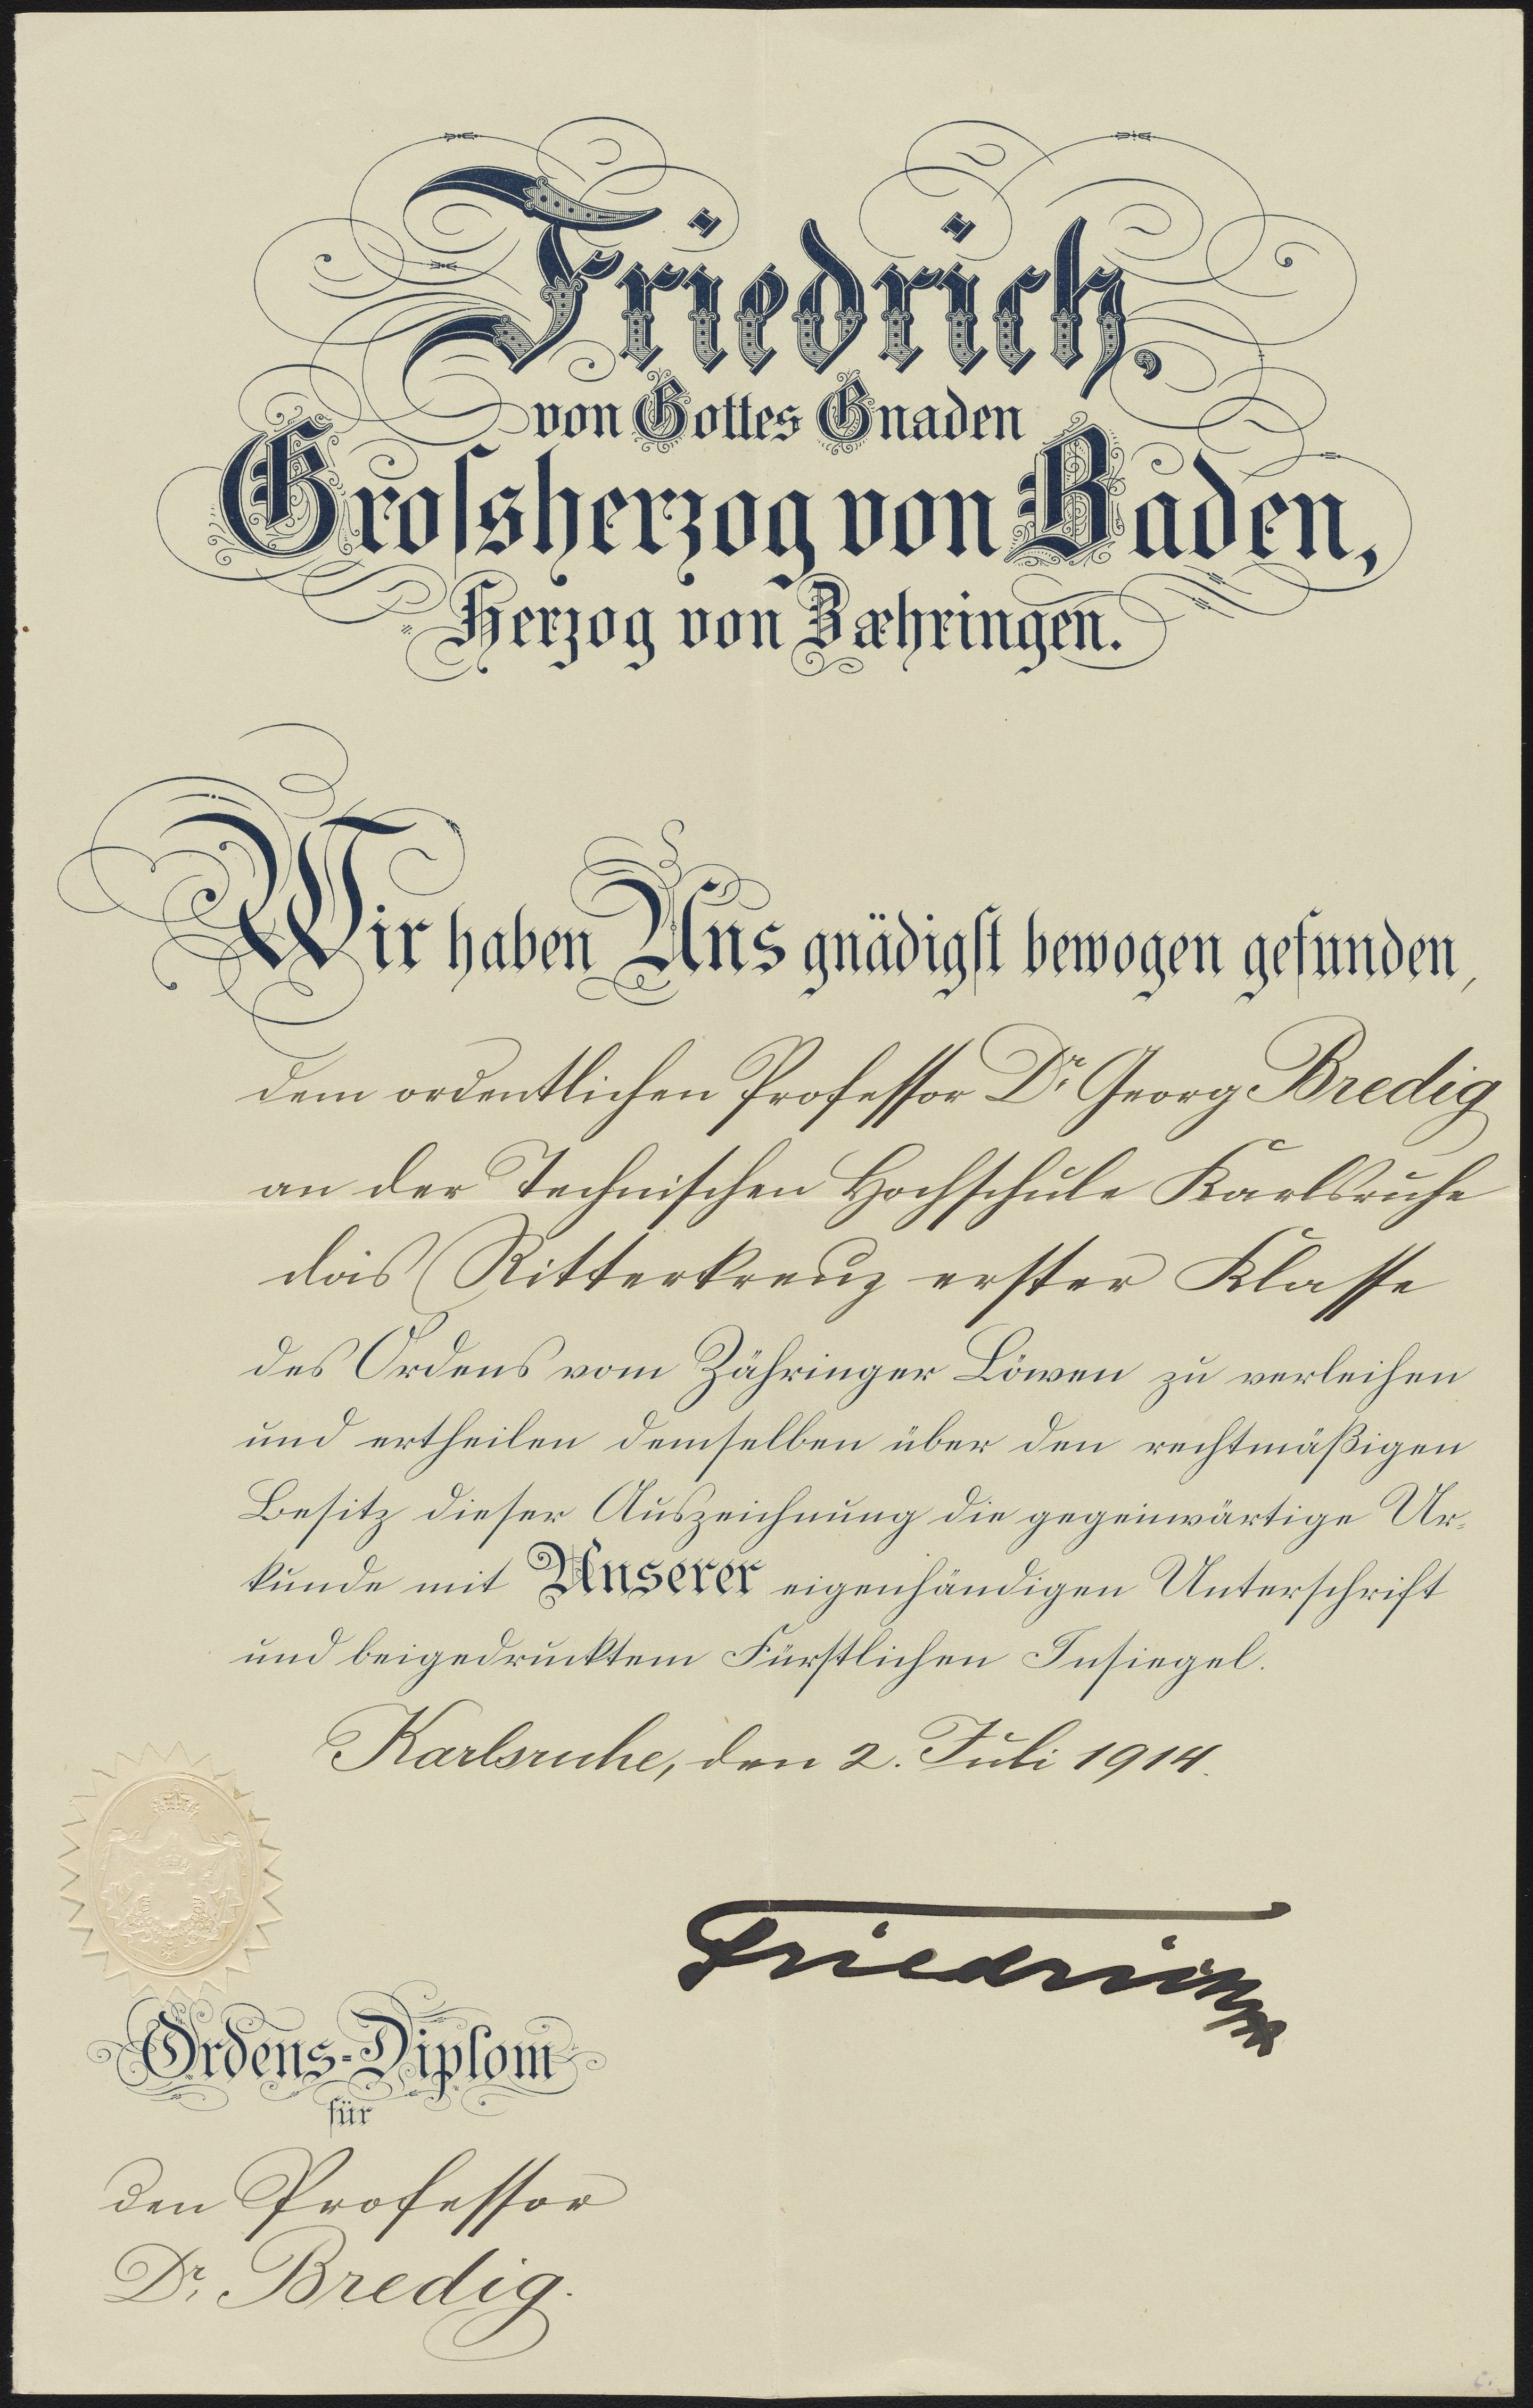 Friedrich,
von Gottes Gnaden
Groſsherzog von Baden,
Herzog von Zæhringen.
Wir haben Uns gnädigſt bewogen gefunden,
dem ordentlichen Professor Dr. Georg Bredig
an der Technischen Hochschule Karlsruhe
das Ritterkreuz erster Klasse
des Ordens vom Zähringer Löwen zu verleihen
und ertheilen demselben über den rechtmäßigen
Besitz dieser Auszeichnung die gegenwärtige Ur-
kunde mit Unserer eigenhändigen Unterschrift
und beigedrucktem Fürstlichen Insiegel.
Karlsruhe, den 2. Juli 1914.
Friedrich
Ordens-Diplom
für
den Professor
Dr. Bredig.